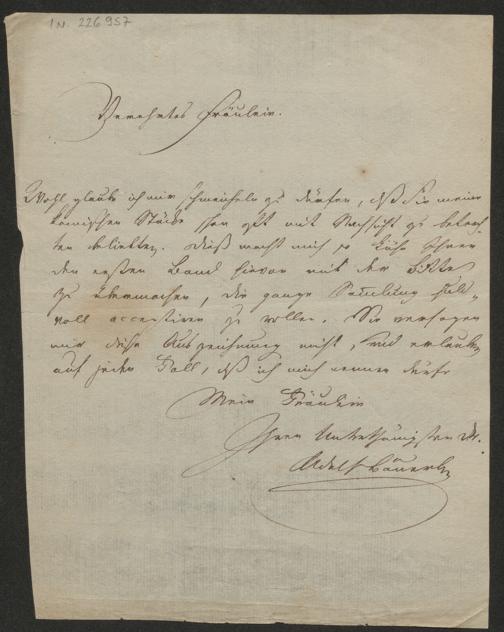 IN. 226957
Verehrtes Fräulein.
Wohl glaube ich mir schmeicheln zu dürfen, daß Sie meine
komischen Stücke schon oft mit Nachsicht zu betrach-
ten beliebten. Dieß macht mich so kühn Ihnen
den ersten Band hievon mit der Bitte
zu übermachen, die ganze Sammlung huld-
voll acceptiren zu wollen. Sie versagen
mir diese Auszeichnung nicht, und erlauben
auf jeden Fall, daß ich mich nennen dürfe
Mein Fräulein
Ihren Unterthänigsten Dr.
Adolf Bäuerle